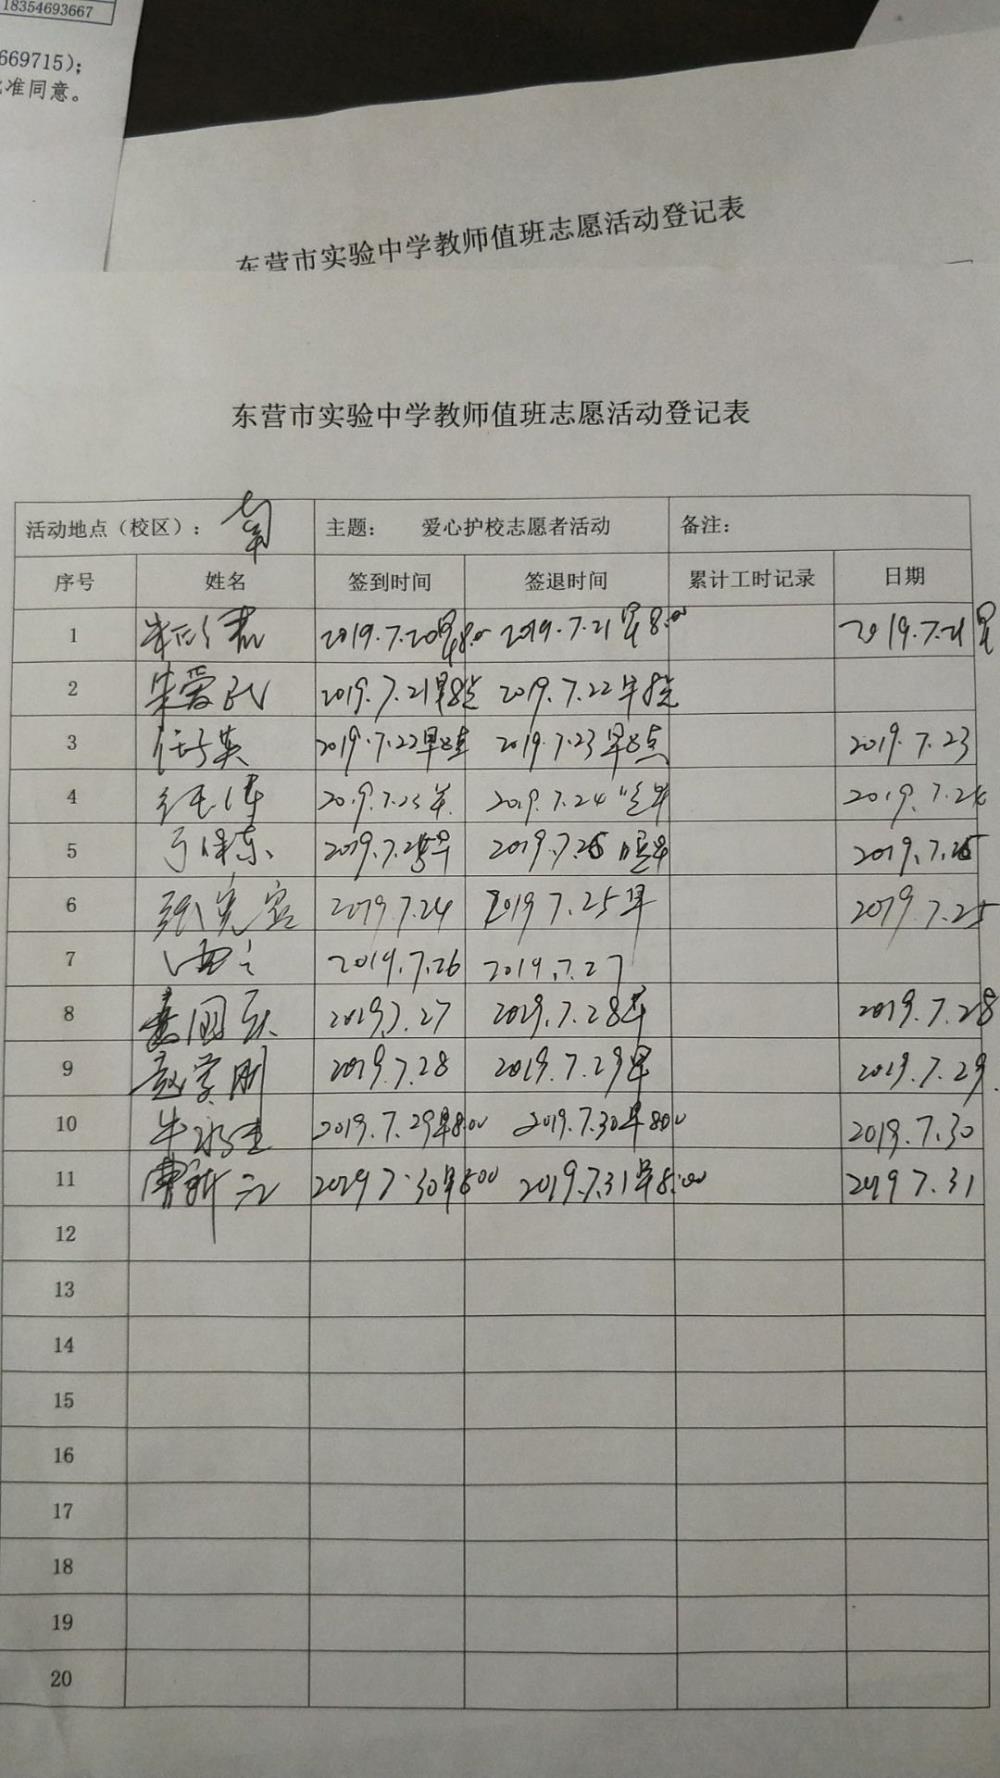 18354693667
669715);
准同意。
东营市实验中学教师值班志愿活动登记表
东营市实验中学教师值班志愿活动登记表
活动地点（校区）: 南 主题: 爱心护校志愿者活动 备注:
序号 姓名 签到时间 签退时间 累计工时记录 日期
1 2019.7.20早8:00 2019.7.21早8:00 2019.7.21早
2 朱爱民 2019.7.21早8点 2019.7.22早8点
3 2019.7.22早8点 2019.7.23早8点 2019.7.23
4 2019.7.23早 2019.7.24 早 2019.7.24
5 2019.7.25早 2019.7.26 早 2019.7.26
6 2019.7.24 2019.7.25早 2019.7.25
7 2019.7.26 2019.7.27
8 2019.7.27 2019.7.28早 2019.7.28
9 2019.7.28 2019.7.29早 2019.7.29.
10 2019.7.29早8:00 2019.7.30早8:00 2019.7.30
11 曹新 2019 7.30早8:00 2019.7.31早8:00 2019 7.31
12
13
14
15
16
17
18
19
20